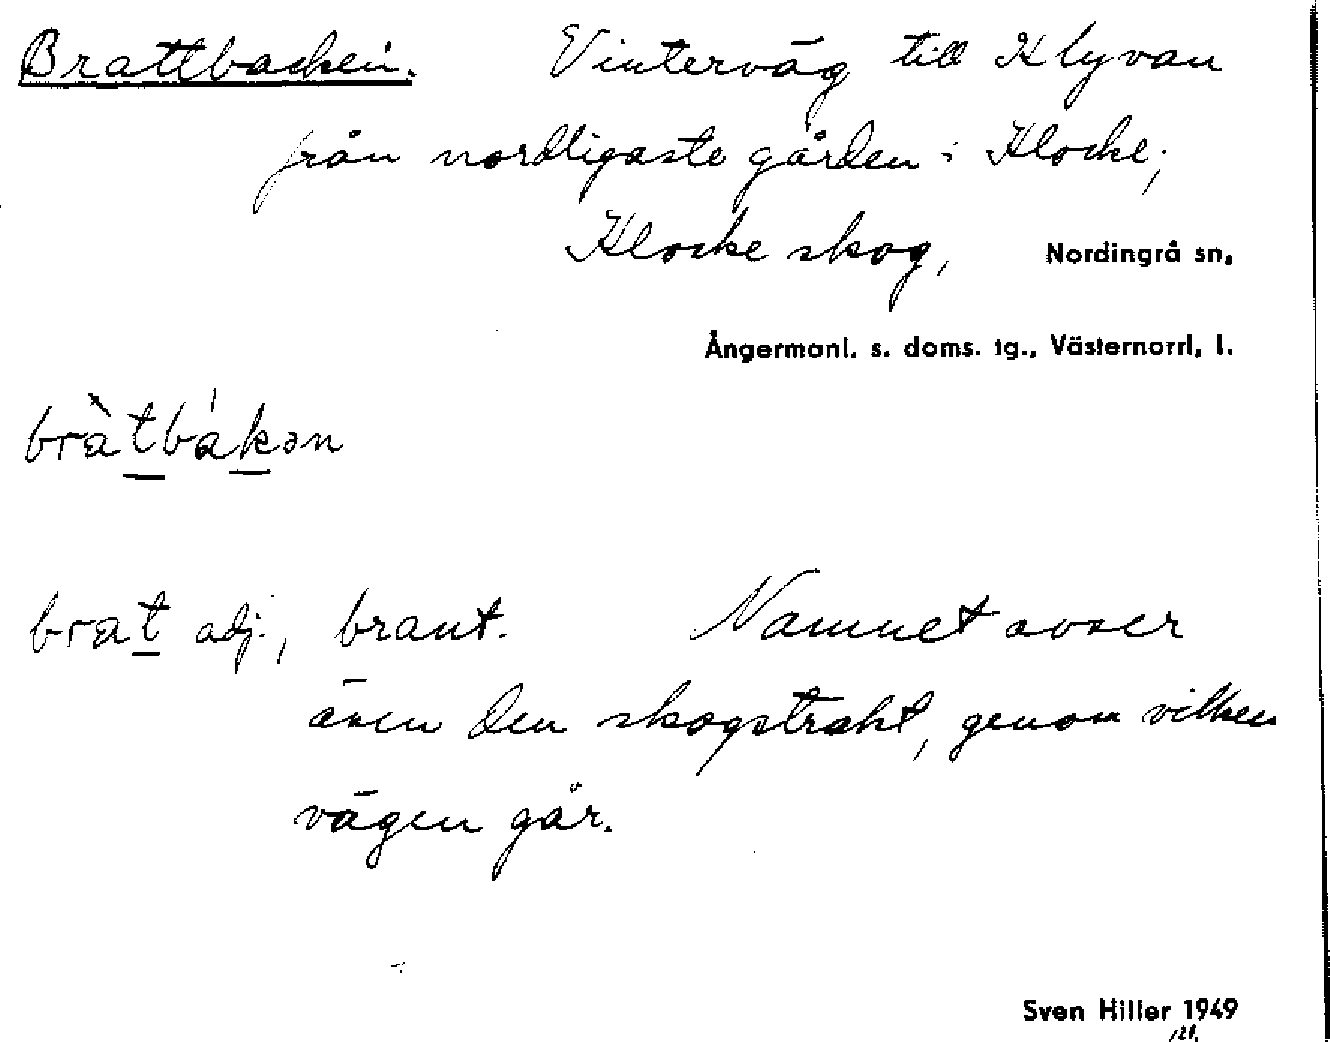 Brattbacken. Vinterväg till Klyvan
från nordligaste gården i Klocke,
Klocke skog, Nordingrå sn,
Ångermanl. s. doms. tg., Västernorrl. l.
bràtbákən
brat adj., brant. Namnet avser
även den skogstrakt, genom vilken
vägen går.
Sven Hiller 1949